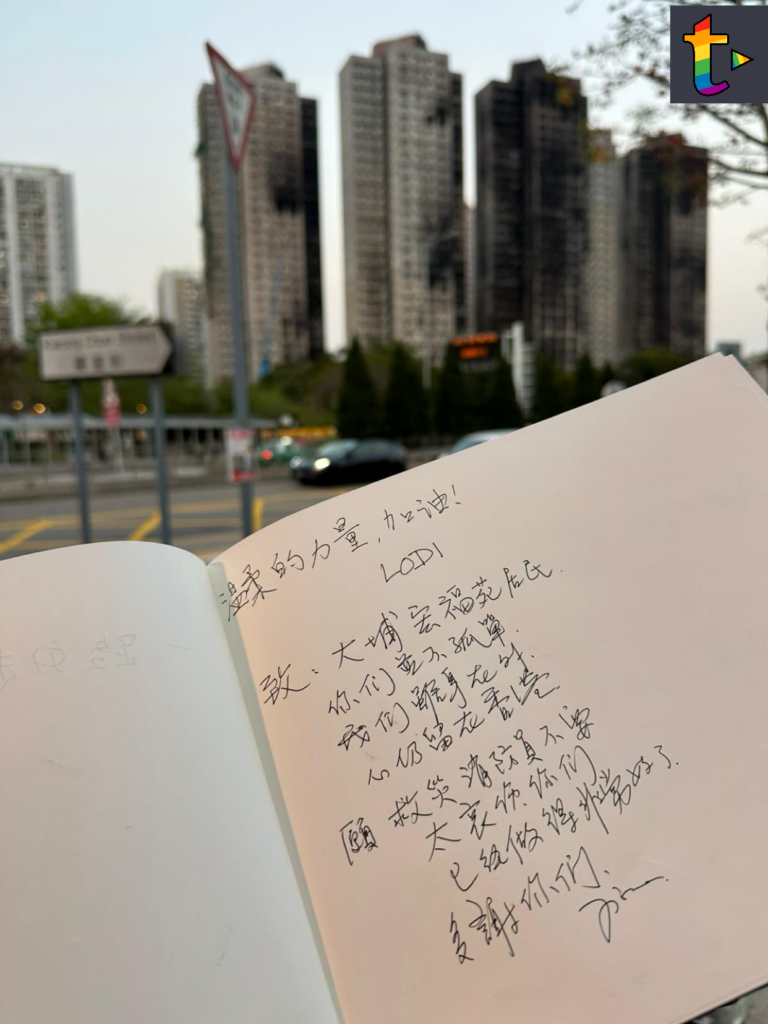 温柔的力量,加油!
LODI
致:大埔宏福苑居民.
你们並不孤單.
我们雖身在外
心仍留在香港
願 救災消防員不要
太哀伤.你们
已经做得非常好了.
多謝你们.